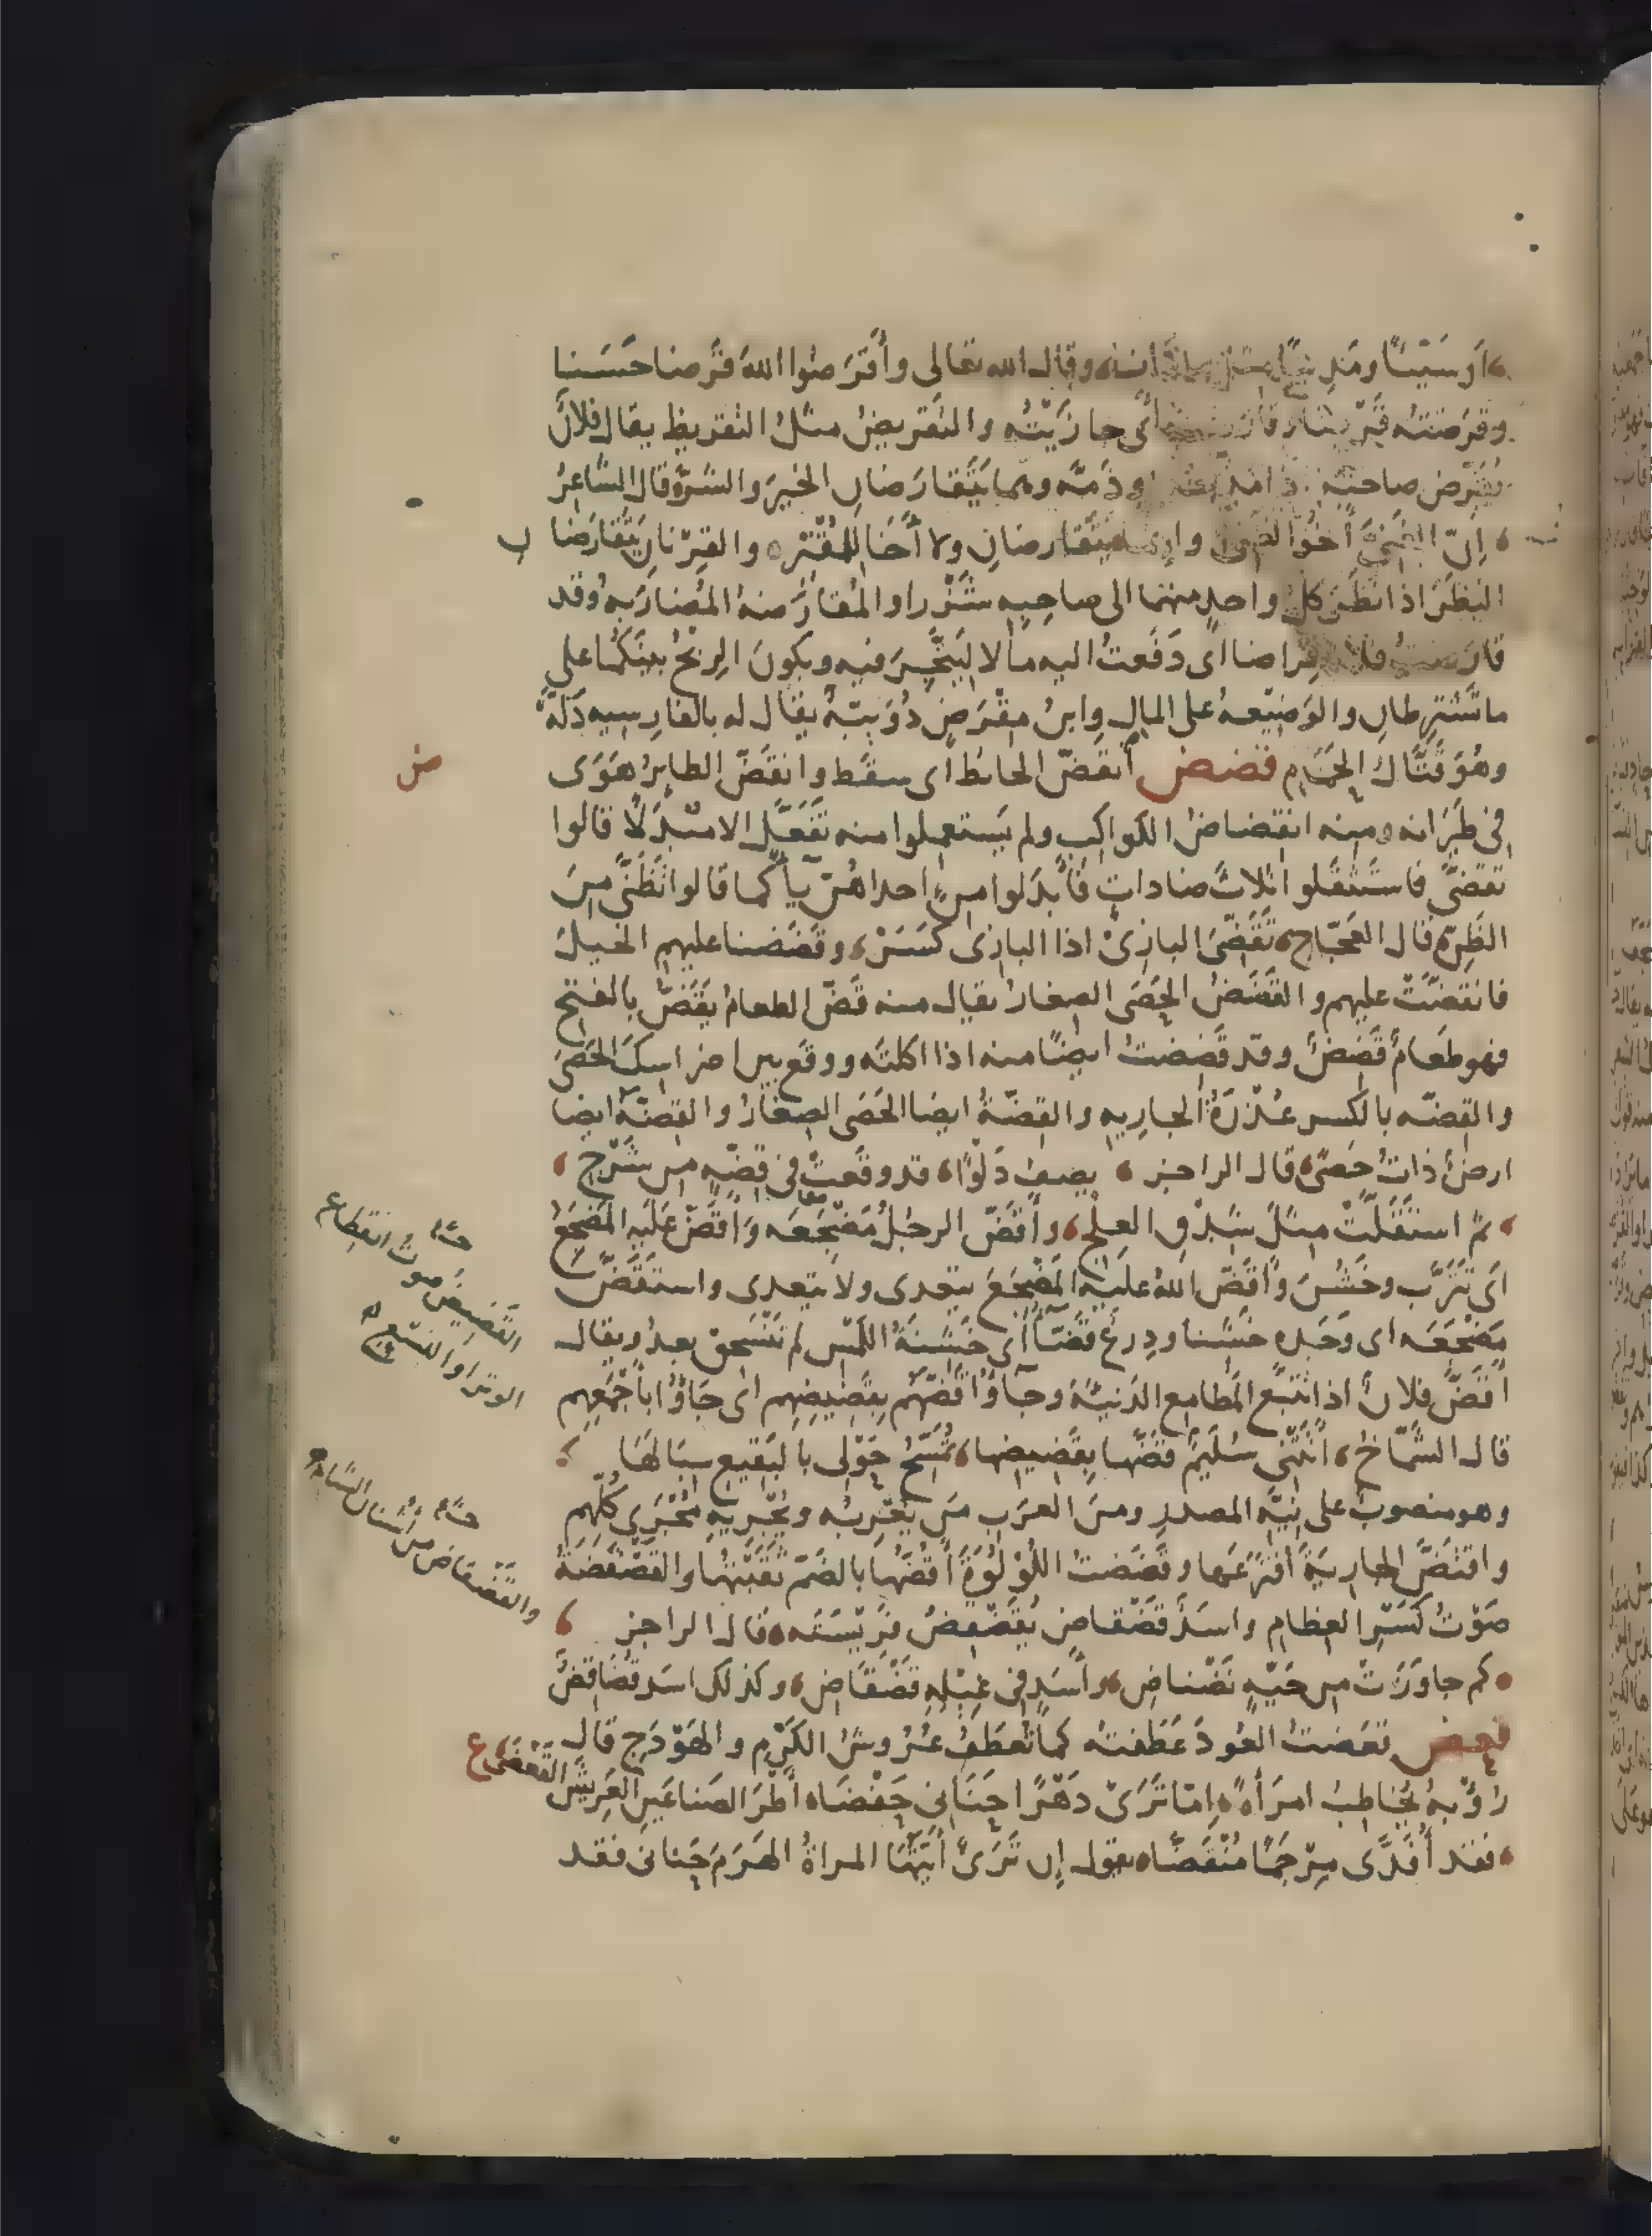 أو سَيّئًا ومَدِينًا مثل ما دانا وقال الله تعالى وأقرَضوا اللهَ قَرضا حَسَنا
وقرَضتُه قَرضا وقارضته أى جازَيْتُه والتَقريضُ مثلُ التقريظ يقال فلانٌ
يُقَرّض صاحبَه اذا مَدحه وذَمّه وهما يَتَقارَضانِ الخيرَ والشرّ قال الشاعرُ
إنّ الغَنىّ أخُو الغَنىّ وانما يتَقارضانِ ولا أخَا للمُقْتِر والقِرْنانِ يَتَقارَضانِ
النظَرَ اذا نظَر كلُّ واحدٍ منهما الى صاحِبِه شَزْرا والمُقارَضَهُ المُضارَبه وقد
قارَضتُ فلانا قِراضا اى دَفَعتُ اليه مالا ليَتَّجِرَ فيه ويكونَ الرِبْحُ بينَكُما على
ما تَشْترِطانِ والوَضِيْعهُ على المالِ وابنُ مِقْرَضٍ دُوَيبّهٌ يقال له بالفارسيه دَلَهْ
وهُوَ قَتّالُ الحَمَام قضض أنقَضّ الحائطُ أى سقَط وانقَضّ الطايرُ هَوَى
فى طَيَرانه ومنه انقِضاضُ الكواكبِ ولم يَستعمِلوا منه تَفَعّلَ الا مُبْدَلًا قالوا
تَقضّى فاستَثقَلوا ثلاثَ ضاداتٍ فأبدَلوا من احداهُنّ ياً كما قالوا تَظَنّى من
الظَنّ قال العَجّاج تَقَضّىَ البازِىْ اذا البازى كَسَرْ وقَضَضنا عليهم الخيلَ
فانقَضّتْ عليهم والقَضَضُ الحَصَى الصِغارُ يقال منه قَضّ الطعامُ يقَضّ بالفتح
فهو طَعامٌ قَضَضٌ وقد قَضِضتُ ايضًا منه اذا اكلتَه ووقَع بين اضراسِكَ الحَصَى
والقِضّه بالكسر عُذْرَةُ الجاريه والقِضّةُ ايضا الحَصَى الصِغارُ والقِضّةُ ايضا
ارضٌ ذاتُ حَصًى قال الراجز يصف دَلْوًا قد وقَعتْ فى قِضّهٍ من شَرْجِ
ثم استَقَلّتْ مثلَ شِدْقِ العِلجِ وأقَضّ الرجُلُ مَضْجَعَه وَأقَضّ عَلَيه المَضْجَعُ
اى تَتَرّب وخَشُنَ وأقَضّ اللهُ عليه المَضْجَعَ يتعدى ولا يتعدى واستَقَضّ
مَضْجَعَه اى وَجَده خَشِنا ودِرعٌ قَضّآءُ أى خَشِنَةُ المَسّ لم تَنْسَحِق بعدُ ويقال
اقَضّ فلانٌ اذا تتبّع المَطامِع الدَنيّةَ وجآوُا قَضّهم بِقَضِيضِهِم أى جَاؤُا بأجْمَعِهِم
قال الشمّاخُ أتَتْنِى سُلَيمٌ قضّها بِقَضيضِها تُمَسّحُ حَوْلِى بالبَقيعِ سِبَالَهَا
وهو منصوبٌ على نِيّه المصدر ومن العرَب من يُعْرِبُه ويُجْرِيهِ مُجْرَى كُلِّهِم
واقتَضّ الجاريَةَ افترَعَها وقَضَضتُ اللُؤْلُؤَةَ أقُضّها بالضَمّ ثَقَبتُها والقَضْقَضَةُ
صَوْتُ كَسْرِ العِظام واسَدٌ قَضْقاضٌ يُقَضْقِضُ فَرِيْسَتَه قال الراجز
كم جاوَزَتْ من حَيّهٍ نَضْناضِ وأسَدٍ فى غِيْلِه قَضْقَاضِ وكذلك اسَد قُضَاقِضٌ
قعض قعَضتُ العُودَ عَطَفتُه كما تُعطَفُ عُرُوشُ الكَرْم والهَوْدَج قال
رؤْبهُ يُخاطِبُ امرَأهً إمّا تَرَىْ دَهْرًا حَنَانِى حَفْضَا أطْرَ الصَناعَينِ العَرِيْشَ القَعْضَى
فقد أُفَدَّى مِرْجَمًا مُنْقَضّا يقول إن تَرَىْ أيّتُهَا المراةُ الهَرَمَ حَنانى فقد
ض
القَضِيضُ صوتُ انقِطاع
الوتَر او النِسْع
والقَضْقاض من أشنان الشام